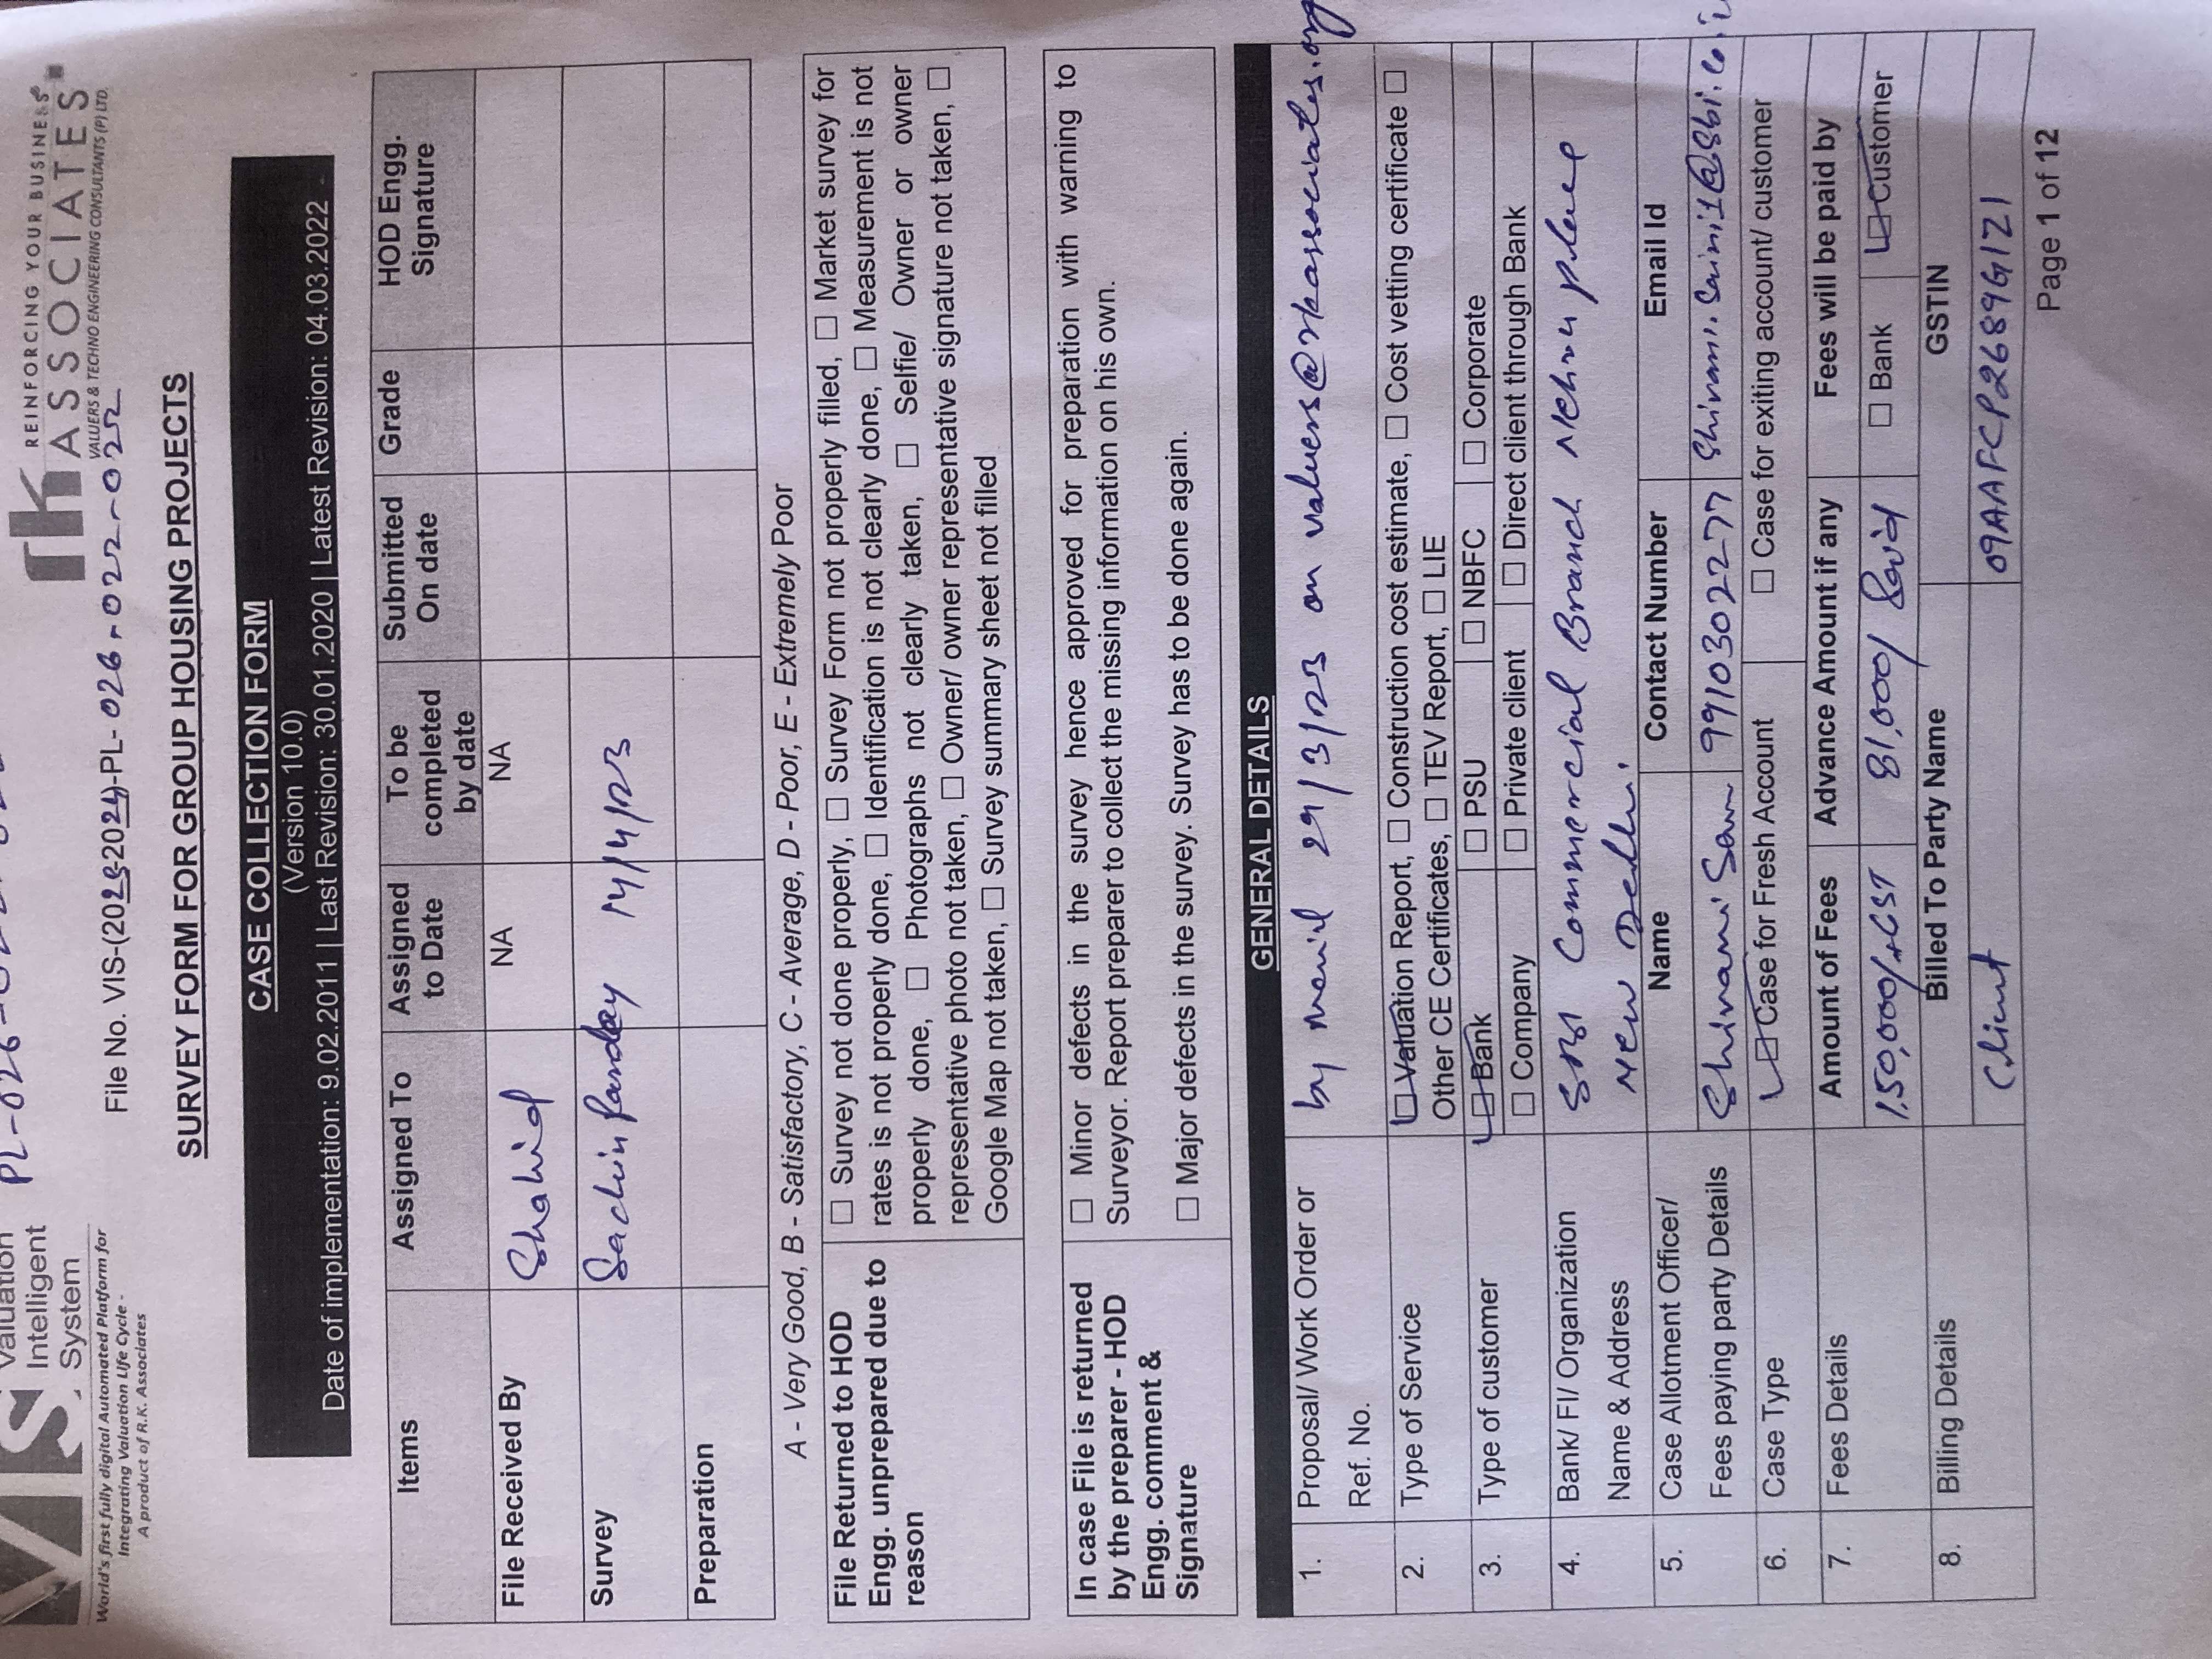 PL-026
Valuation
Intelligent
System
World's first fully digital Automated Platform for
Integrating Valuation Life Cycle -
A product of R.K. Associates
REINFORCING YOUR BUSINESS
rk ASSOCIATES
VALUERS & TECHNO ENGINEERING CONSULTANTS (P) LTD.
File No. VIS-(2023-2024)-PL-026-022-022
SURVEY FORM FOR GROUP HOUSING PROJECTS
CASE COLLECTION FORM
(Version 10.0)
Date of implementation: 9.02.2011 | Last Revision: 30.01.2020 | Latest Revision: 04.03.2022
Items Assigned To Assigned to Date To be completed by date Submitted On date Grade HOD Engg. Signature
File Received By Shahid NA NA
Survey Sachin Panday 14/4/23
Preparation
A - Very Good, B - Satisfactory, C - Average, D - Poor, E - Extremely Poor
File Returned to HOD Engg. unprepared due to reason
☐ Survey not done properly, ☐ Survey Form not properly filled, ☐ Market survey for
rates is not properly done, ☐ Identification is not clearly done, ☐ Measurement is not
properly done, ☐ Photographs not clearly taken, ☐ Selfie/ Owner or owner
representative photo not taken, ☐ Owner/ owner representative signature not taken, ☐
Google Map not taken, ☐ Survey summary sheet not filled
In case File is returned by the preparer - HOD Engg. comment & Signature
☐ Minor defects in the survey hence approved for preparation with warning to
Surveyor. Report preparer to collect the missing information on his own.
☐ Major defects in the survey. Survey has to be done again.
GENERAL DETAILS
1. Proposal/ Work Order or Ref. No. by 29/3/23 on valuers@rkassociates.org
2. Type of Service ☑ Valuation Report, ☐ Construction cost estimate, ☐ Cost vetting certificate ☐
Other CE Certificates, ☐ TEV Report, ☐ LIE
3. Type of customer ☑ Bank ☐ PSU ☐ NBFC ☐ Corporate
☐ Company ☐ Private client ☐ Direct client through Bank
4. Bank/ FI/ Organization Name & Address SBI Commercial Branch Nehru place
New Delhi
5. Case Allotment Officer/ Fees paying party Details Name Contact Number Email Id
Shivani 9910302277 Shivani.Saini1@sbi.co.i
6. Case Type ☑ Case for Fresh Account ☐ Case for exiting account/ customer
7. Fees Details Amount of Fees Advance Amount if any Fees will be paid by
1,50,000/+GST 81,000/ Paid ☐ Bank ☑ Customer
8. Billing Details Billed To Party Name GSTIN
Client 09AAFCP2689G1Z1
Page 1 of 12